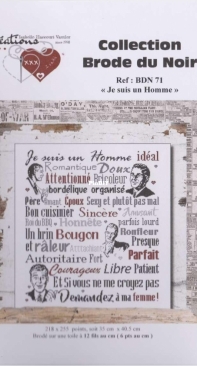 Créations
Collection
Brode du Noir
Ref : BDN 71
« Je suis un Homme »
Je suis un Homme idéal
Romantique Doux
Attentionné Bricoleur
bordélique organisé
Père Epoux Sexy et plutôt pas mal
Bon cuisinier Sincère Amusant
Roi du BBQ Honnête parfois lourd
Un brin Bougon Ronfleur
et râleur Presque
Autoritaire Fort Parfait
Courageux Libre Patient
Et Si vous ne me croyez pas
Demandez à ma femme!
218 x 255 points, soit 35 cm x 40.5 cm
Brodé sur une toile à 12 fils au cm ( 6 pts au cm )